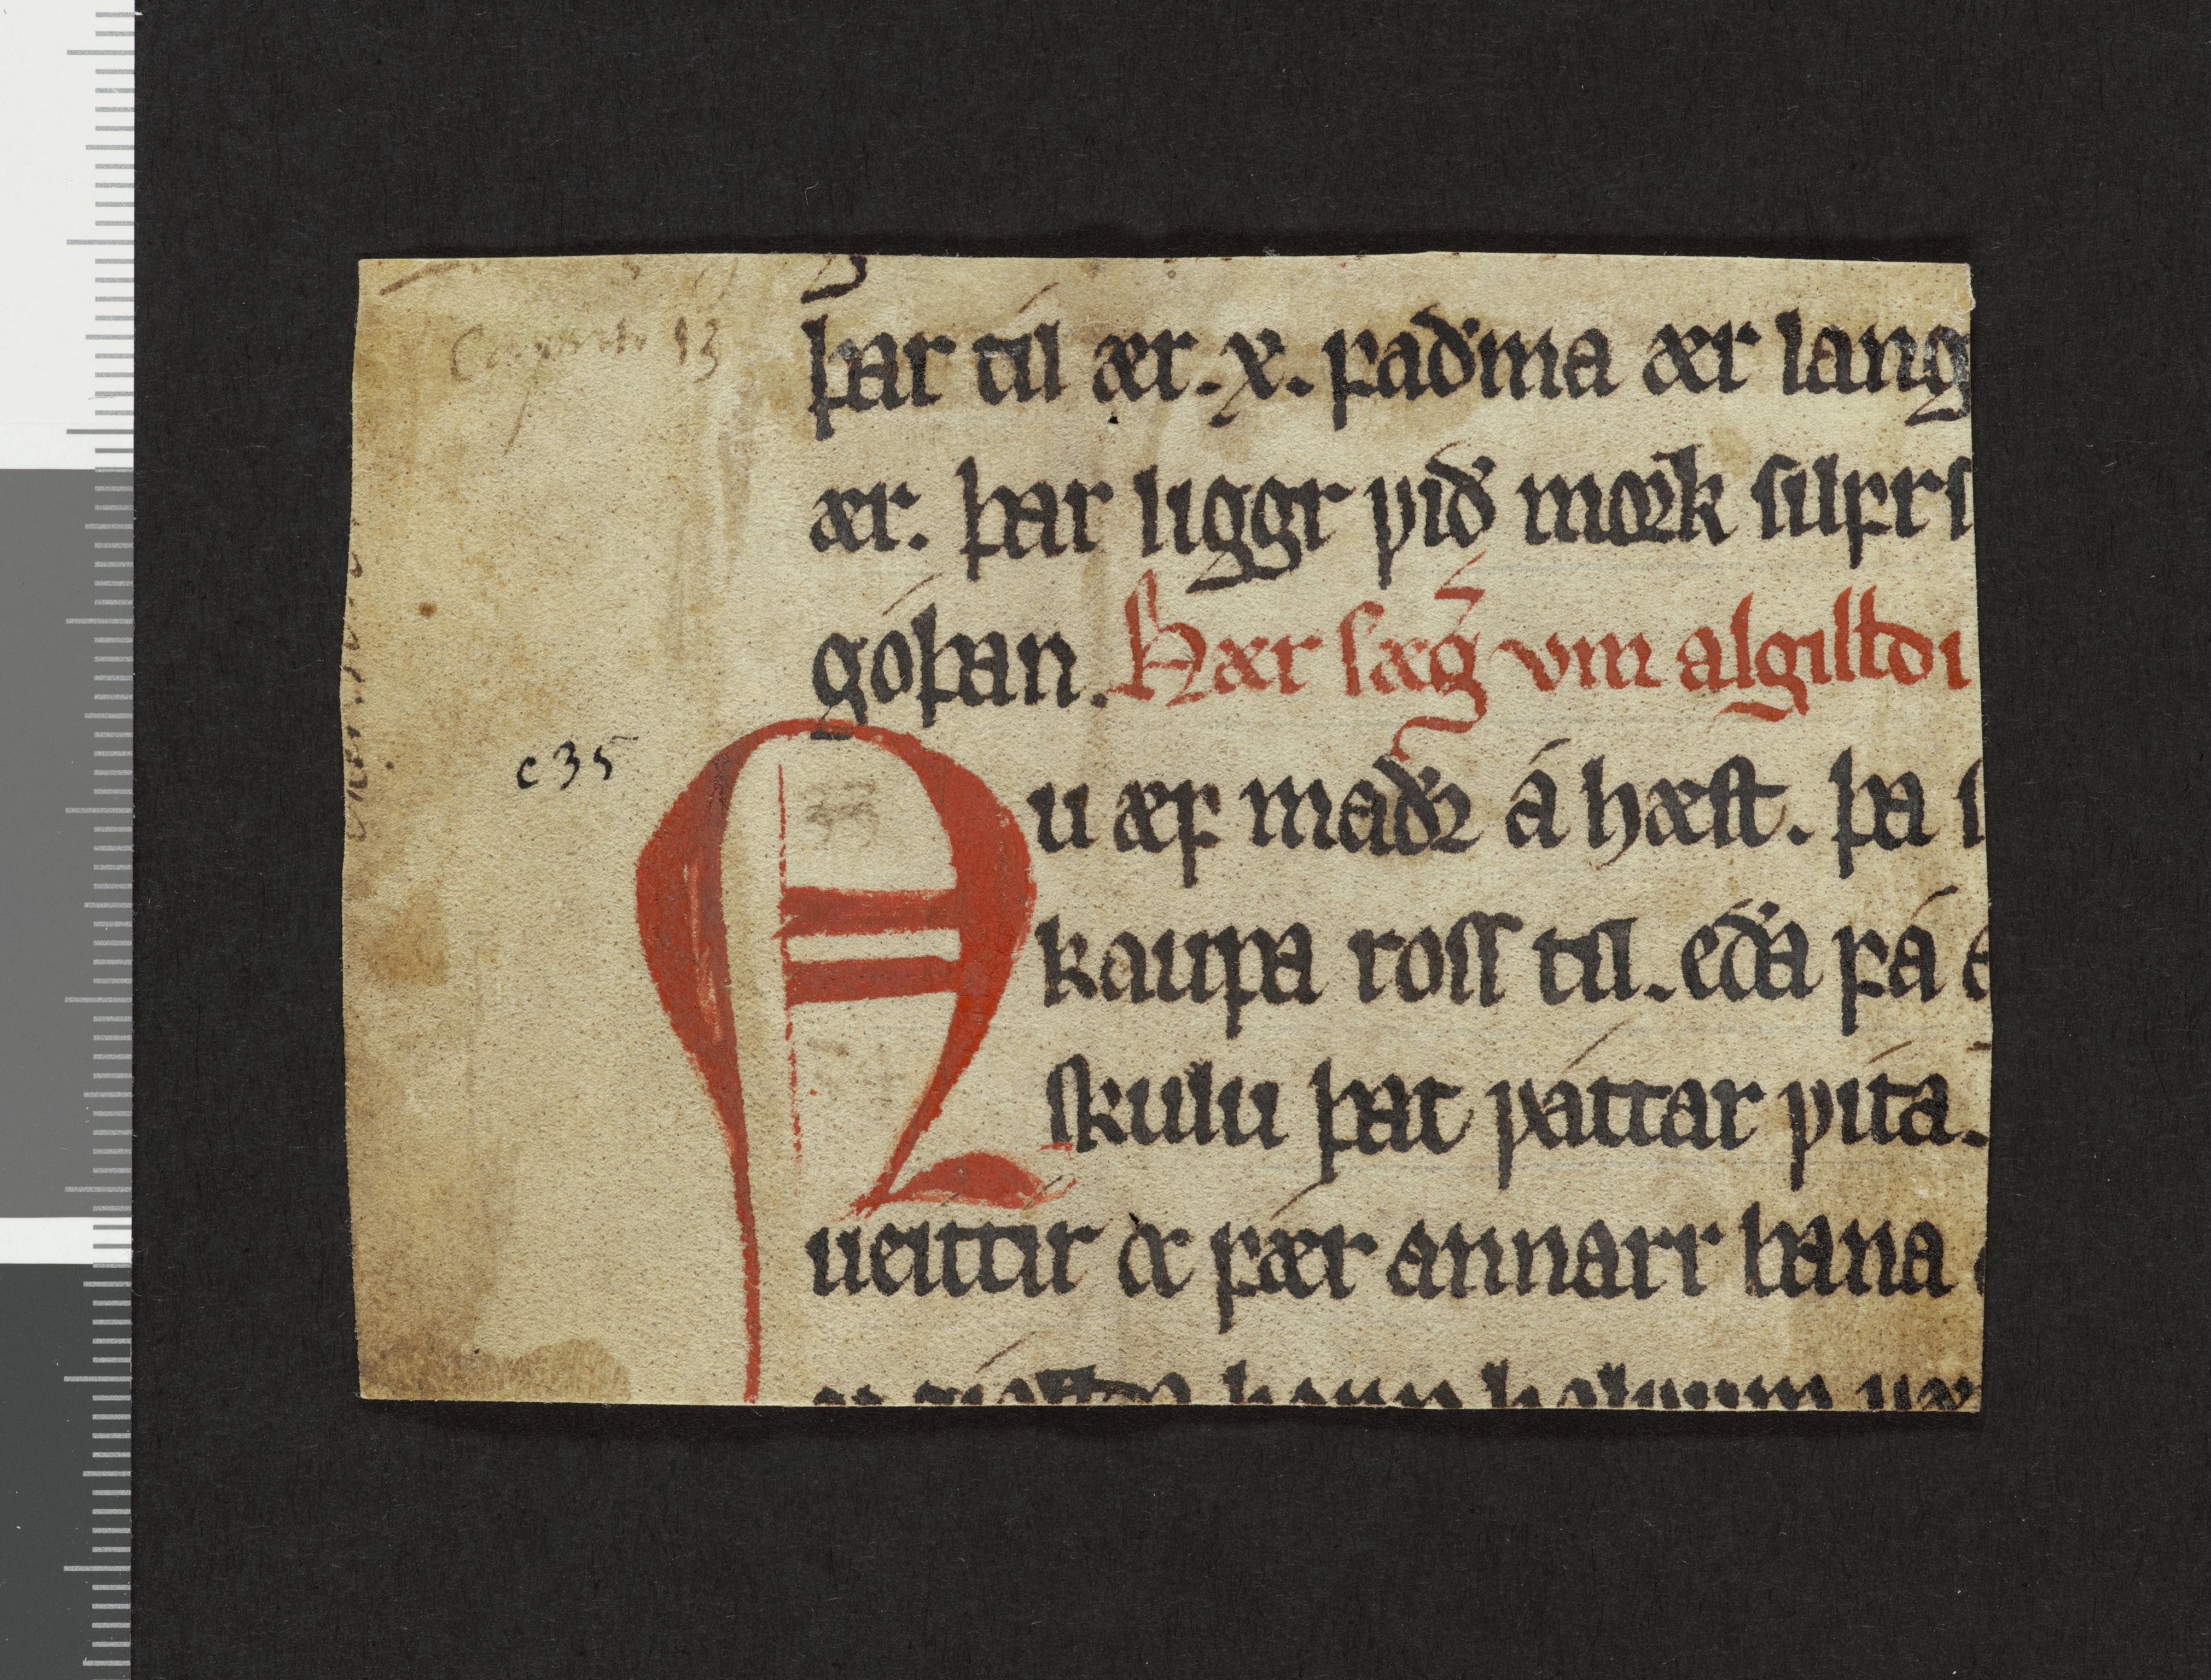 þar til ær. x. faðma ær lang
ær. þar liggr við mork silfrs
góþan. Hær sæg vm algilldi
c 35
Nu æf maðr á hæst. þa s
kaupa ross til. eða fá
skulu þat váttar vita.
ueittir oc fær annarr hana